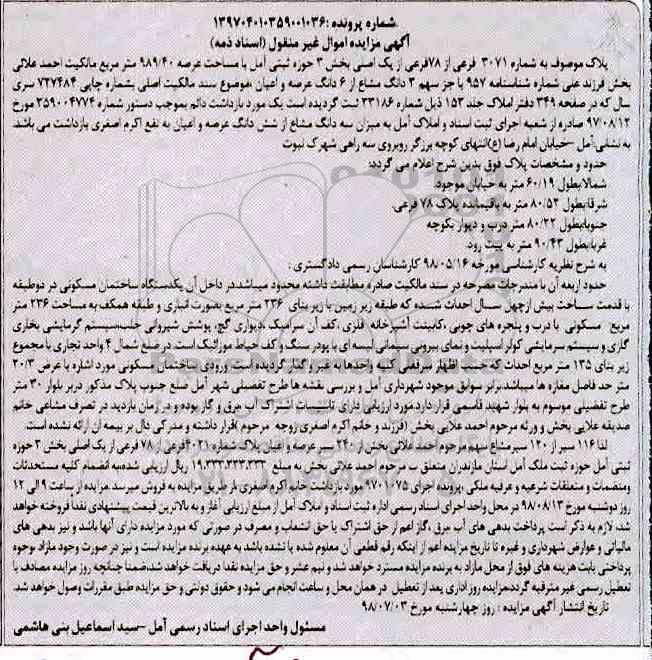 شماره پرونده :۱۳۹۷۰۴۰۱۰۳۵۹۰۰۱۰۳۶
آگهی مزایده اموال غیر منقول (اسناد ذمه)
پلاک موصوف به شماره ۳۰۷۱ فرعی از ۷۸فرعی از یک اصلی بخش ۳ حوزه ثبتی آمل با مساحت عرصه ۹۸۹/۴۰ متر مربع مالکیت احمد علائی
بخش فرزند علی شماره شناسنامه ۹۵۷ با جز سهم ۳ دانگ مشاع از ۶ دانگ عرصه و اعیان ،موضوع سند مالکیت اصلی بشماره چاپی ۷۲۷۴۸۴ سری
سال که در صفحه ۳۴۹ دفتر املاک جلد ۱۵۳ ذیل شماره ۳۳۱۸۶ ثبت گردیده است یک مورد بازداشت دائم بموجب دستور شماره ۳۵۹۰۰۴۷۷۴ مورخ
۹۷۰۸/۱۲ صادره از شعبه اجرای ثبت اسناد و املاک آمل به میزان سه دانگ مشاع از شش دانگ عرصه و اعیان به نفع اکرم اصغری بازداشت می باشد.
به نشانی:آمل –خیابان امام رضا (ع)انتهای کوچه برزگر روبروی سه راهی شهرک نبوت
حدود و مشخصات پلاک فوق بدین شرح اعلام می گردد:
شمالا:بطول ۶۰/۱۹ متر به خیابان موجود.
شرقا:بطول ۸۰/۵۲ متر به باقیمانده پلاک ۷۸ فرعی.
جنوبا:بطول ۸۰/۲۲ متر درب و دیوار بکوچه
غربا:بطول ۹۰/۴۳ متر به پیت رود.
به شرح نظریه کارشناسی مورخه ۹۸/۰۵/۱۶ کارشناسان رسمی دادگستری :
حدود اربعه آن با مندرجات مصرحه در سند مالکیت صادره مطابقت داشته محدود میباشد.در داخل آن یکدستگاه ساختمان مسکونی در دوطبقه
با قدمت ساخت بیش ازچهل سال احداث شده که طبقه زیر زمین با زیر بنای ۲۳۶ متر مربع بصورت انباری و طبقه همکف به مساحت ۲۳۶ متر
مربع مسکونی با درب و پنجره های چوبی ،کابینت آشپزخانه فلزی ،کف آن سرامیک ،دیواری گچ، پوشش شیروانی حلب،سیستم گرمایشی بخاری
گازی و سیستم سرمایشی کولر اسپلیت و نمای بیرونی سیمانی لیسه ای با پودر سنگ و کف حیاط موزائیک است.در ضلع شمال ۴ واحد تجاری با مجموع
زیر بنای ۱۳۵ متر مربع احداث که حسب اظهار سرقفلی کلیه واحدها به غیر واگذار گردیده است ورودی ساختمان مسکونی مورد اشاره با عرض ۲۰/۳
متر حد فاصل مغازه ها میباشد.برابر سوابق موجود شهرداری آمل و بررسی نقشه ها طرح تفصیلی شهر آمل ضلع جنوب پلاک مذکور دربر بلوار ۳۰ متر
طرح تفضیلی موسوم به بلوار شهید قاسمی قرار دارد.مورد ارزیابی دارای تاسیسات اشتراک آب برق و گاز بوده و در زمان بازدید در تصرف مشاعی خانم
صدیقه علایی بخش و ورثه مرحوم احمد علایی بخش (فرزند و خانم اکرم اصغری زوجه مرحوم )قرار داشته و مدرکی دال بر بیمه ان ارائه نشده است.
لذا ۱۱۶ سیر از ۱۲۰ سیر مشاع سهم مرحوم احمد علائی بخش از ۲۴۰ سیر عرصه و اعیان پلاک شماره ۴۰۲۱ فرعی از ۷۸ فرعی از یک اصلی بخش ۳ حوزه
ثبتی آمل حوزه ثبت ملک آمل استان مازندران متعلق ب مرحوم احمد علائی بخش به مبلغ ۱۹,۳۳۳,۳۳۳,۳۳۳ ریال ارزیابی شده،به انضمام کلیه مستحدثات
ومنضمات و متعلقات شرعیه و عرفیه ملکی ،پرونده اجرای ۹۷۰۱۰۷۵ مورد بازداشت خانم اکرم اصغری از طریق مزایده به فروش میرسد.مزایده از ساعت ۹ الی ۱۲
روز دوشنبه مورخ ۹۸/۰۸/۱۳ در محل واحد اجرای اسناد رسمی اداره ثبت اسناد و املاک آمل از مبلغ ارزیابی آغاز و به بالاترین قیمت پیشنهادی نقدا فروخته خواهد
شد. لازم به ذکر است پرداخت بدهی های آب ،برق ،گاز اعم از حق اشتراک یا حق انشعاب و مصرف در صورتی که مورد مزایده دارای آنها باشد و نیز بدهی های
مالیاتی و عوارض شهرداری و غیره تا تاریخ مزایده اعم از اینکه رقم قطعی آن معلوم شده یا نشده باشد به عهده برنده مزایده است و نیز در صورت وجود مازاد ،وجوه
پرداختی بابت هزینه های فوق از محل مازاد به برنده مزایده مسترد خواهد شد و نیم عشر و حق مزایده نقدا دریافت خواهد شد.ضمنا چنانچه روز مزایده مصادف با
تعطیل رسمی غیر مترقبه گردد،مزایده روز اداری بعد از تعطیل در همان محل و ساعت انجام می شود و حقوق دولتی و حق مزایده طبق مقررات وصول خواهد شد.
تاریخ انتشار آگهی مزایده : روز چهارشنبه مورخ ۹۸/۰۷/۰۳
مسئول واحد اجرای اسناد رسمی آمل –سید اسماعیل بنی هاشمی